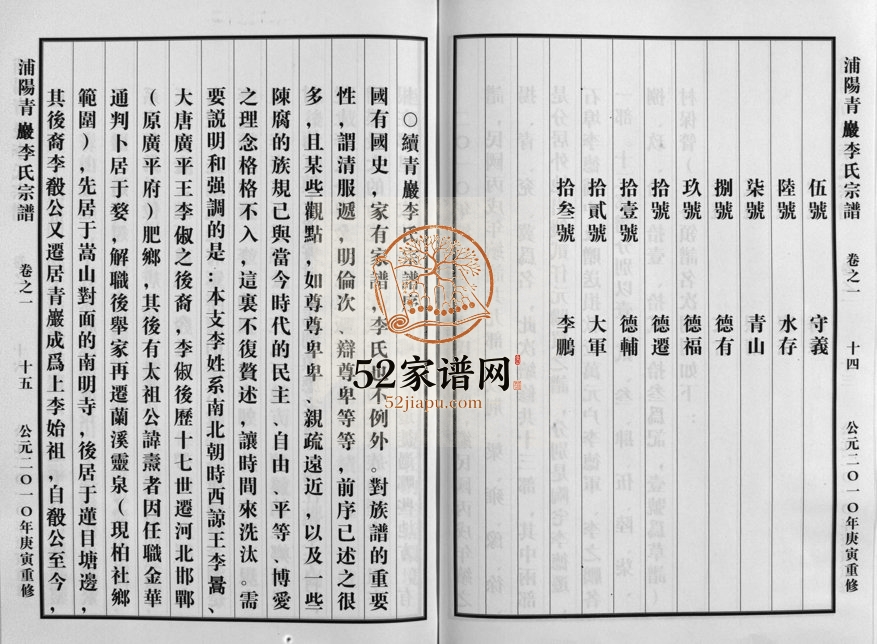 浦陽青巖李氏宗譜 卷之一 十四 公元二〇一〇年庚寅重修
伍號 守義
陸號 水存
柒號 青山
捌號 德有
玖號 德福
拾號 德遷
拾壹號 德輔
拾貳號 大軍
拾叁號 李鵬
○續青巖李氏宗譜序
國有國史，家有家譜，李氏也不例外。對族譜的重要
性，謂清服遞，明倫次、辯尊卑等等，前序已述之很
多，且某些觀點，如尊尊卑卑、親疏遠近，以及一些
陳腐的族規已與當今時代的民主、自由、平等、博愛
之理念格格不入，這裏不復贅述，讓時間來洗汰。需
要説明和强調的是：本支李姓系南北朝時西諒王李暠、
大唐廣平王李俶之後裔，李俶後歷十七世遷河北邯鄲
（原廣平府）肥鄉，其後有太祖公諱燾者因任職金華
通判卜居于婺，解職後舉家再遷蘭溪靈泉（現柏社鄉
範圍），先居于嵩山對面的南明寺，後居于蓮目塘邊，
其後裔李殽公又遷居青巖成爲上李始祖，自殽公至今，
浦陽青巖李氏宗譜 卷之一 十五 公元二〇一〇年庚寅重修
52家谱网
52jiapu.com